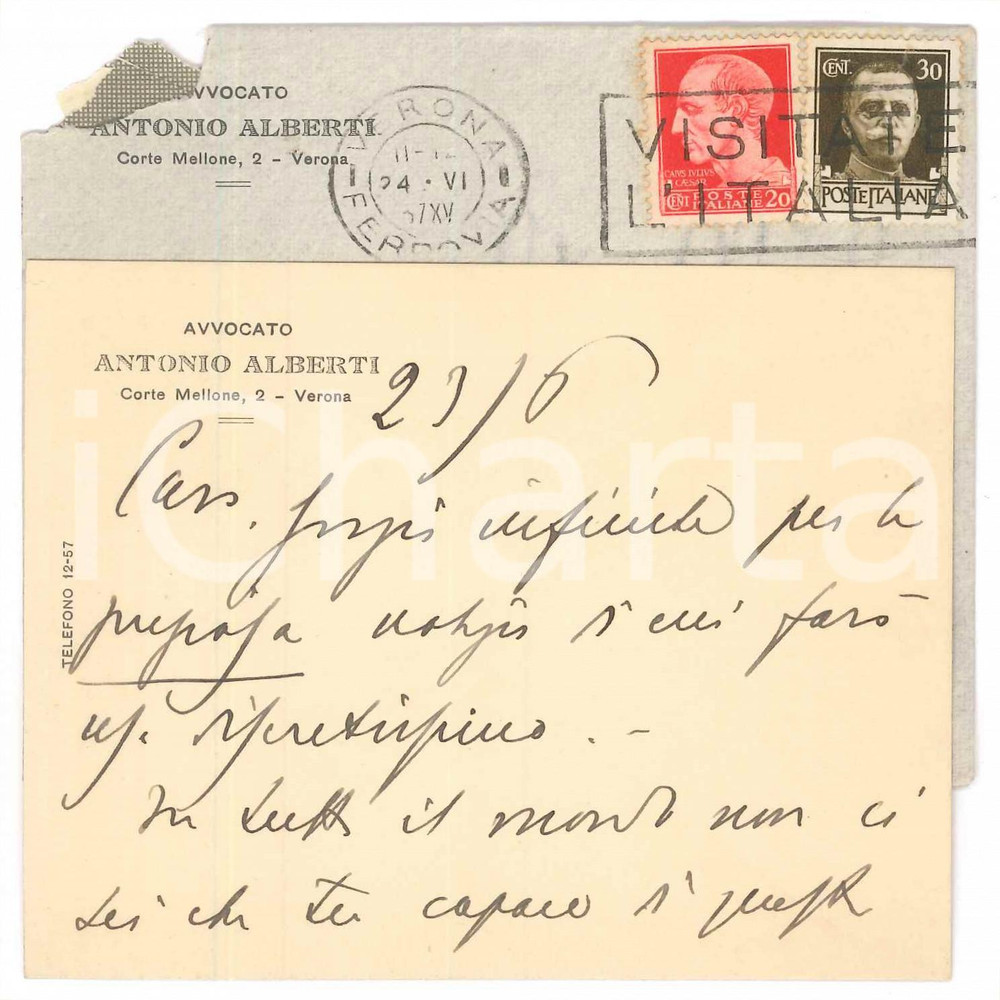 AVVOCATO
ANTONIO ALBERTI
Corte Mellone, 2 - Verona
VERONA
24 · VI
37 XV
FERROVIA
VISITATE
L'ITALIA
CAIVS IVLIVS
CÆSAR
POSTE
CENT ITALIANE 20
CENT. 30
POSTE ITALIANE
AVVOCATO
ANTONIO ALBERTI
Corte Mellone, 2 - Verona
TELEFONO 12-57
23/6
Caro, grazie infinite per la
preziosa notizia di cui farò
uso discretissimo. -
In tutto il mondo non ci
sei che tu capace di queste
iCharta